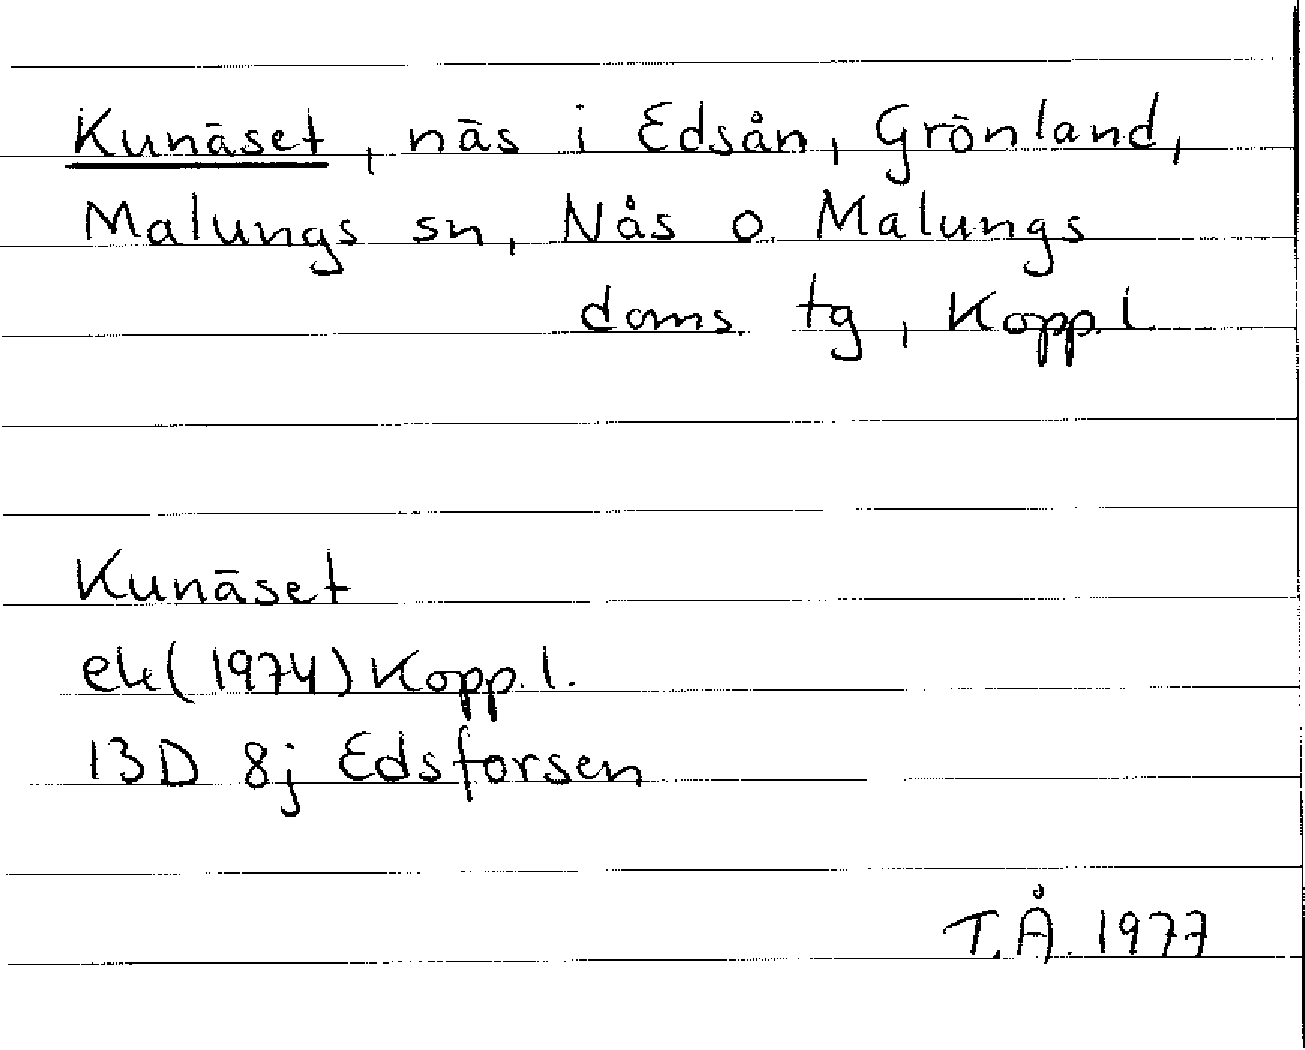 Kunäset, näs i Edsån, Grönland,
Malungs sn, Nås o. Malungs
doms. tg, Kopp. l
Kunäset
ek (1974) Kopp. l.
13D 8j Edsforsen
T.Å. 1977